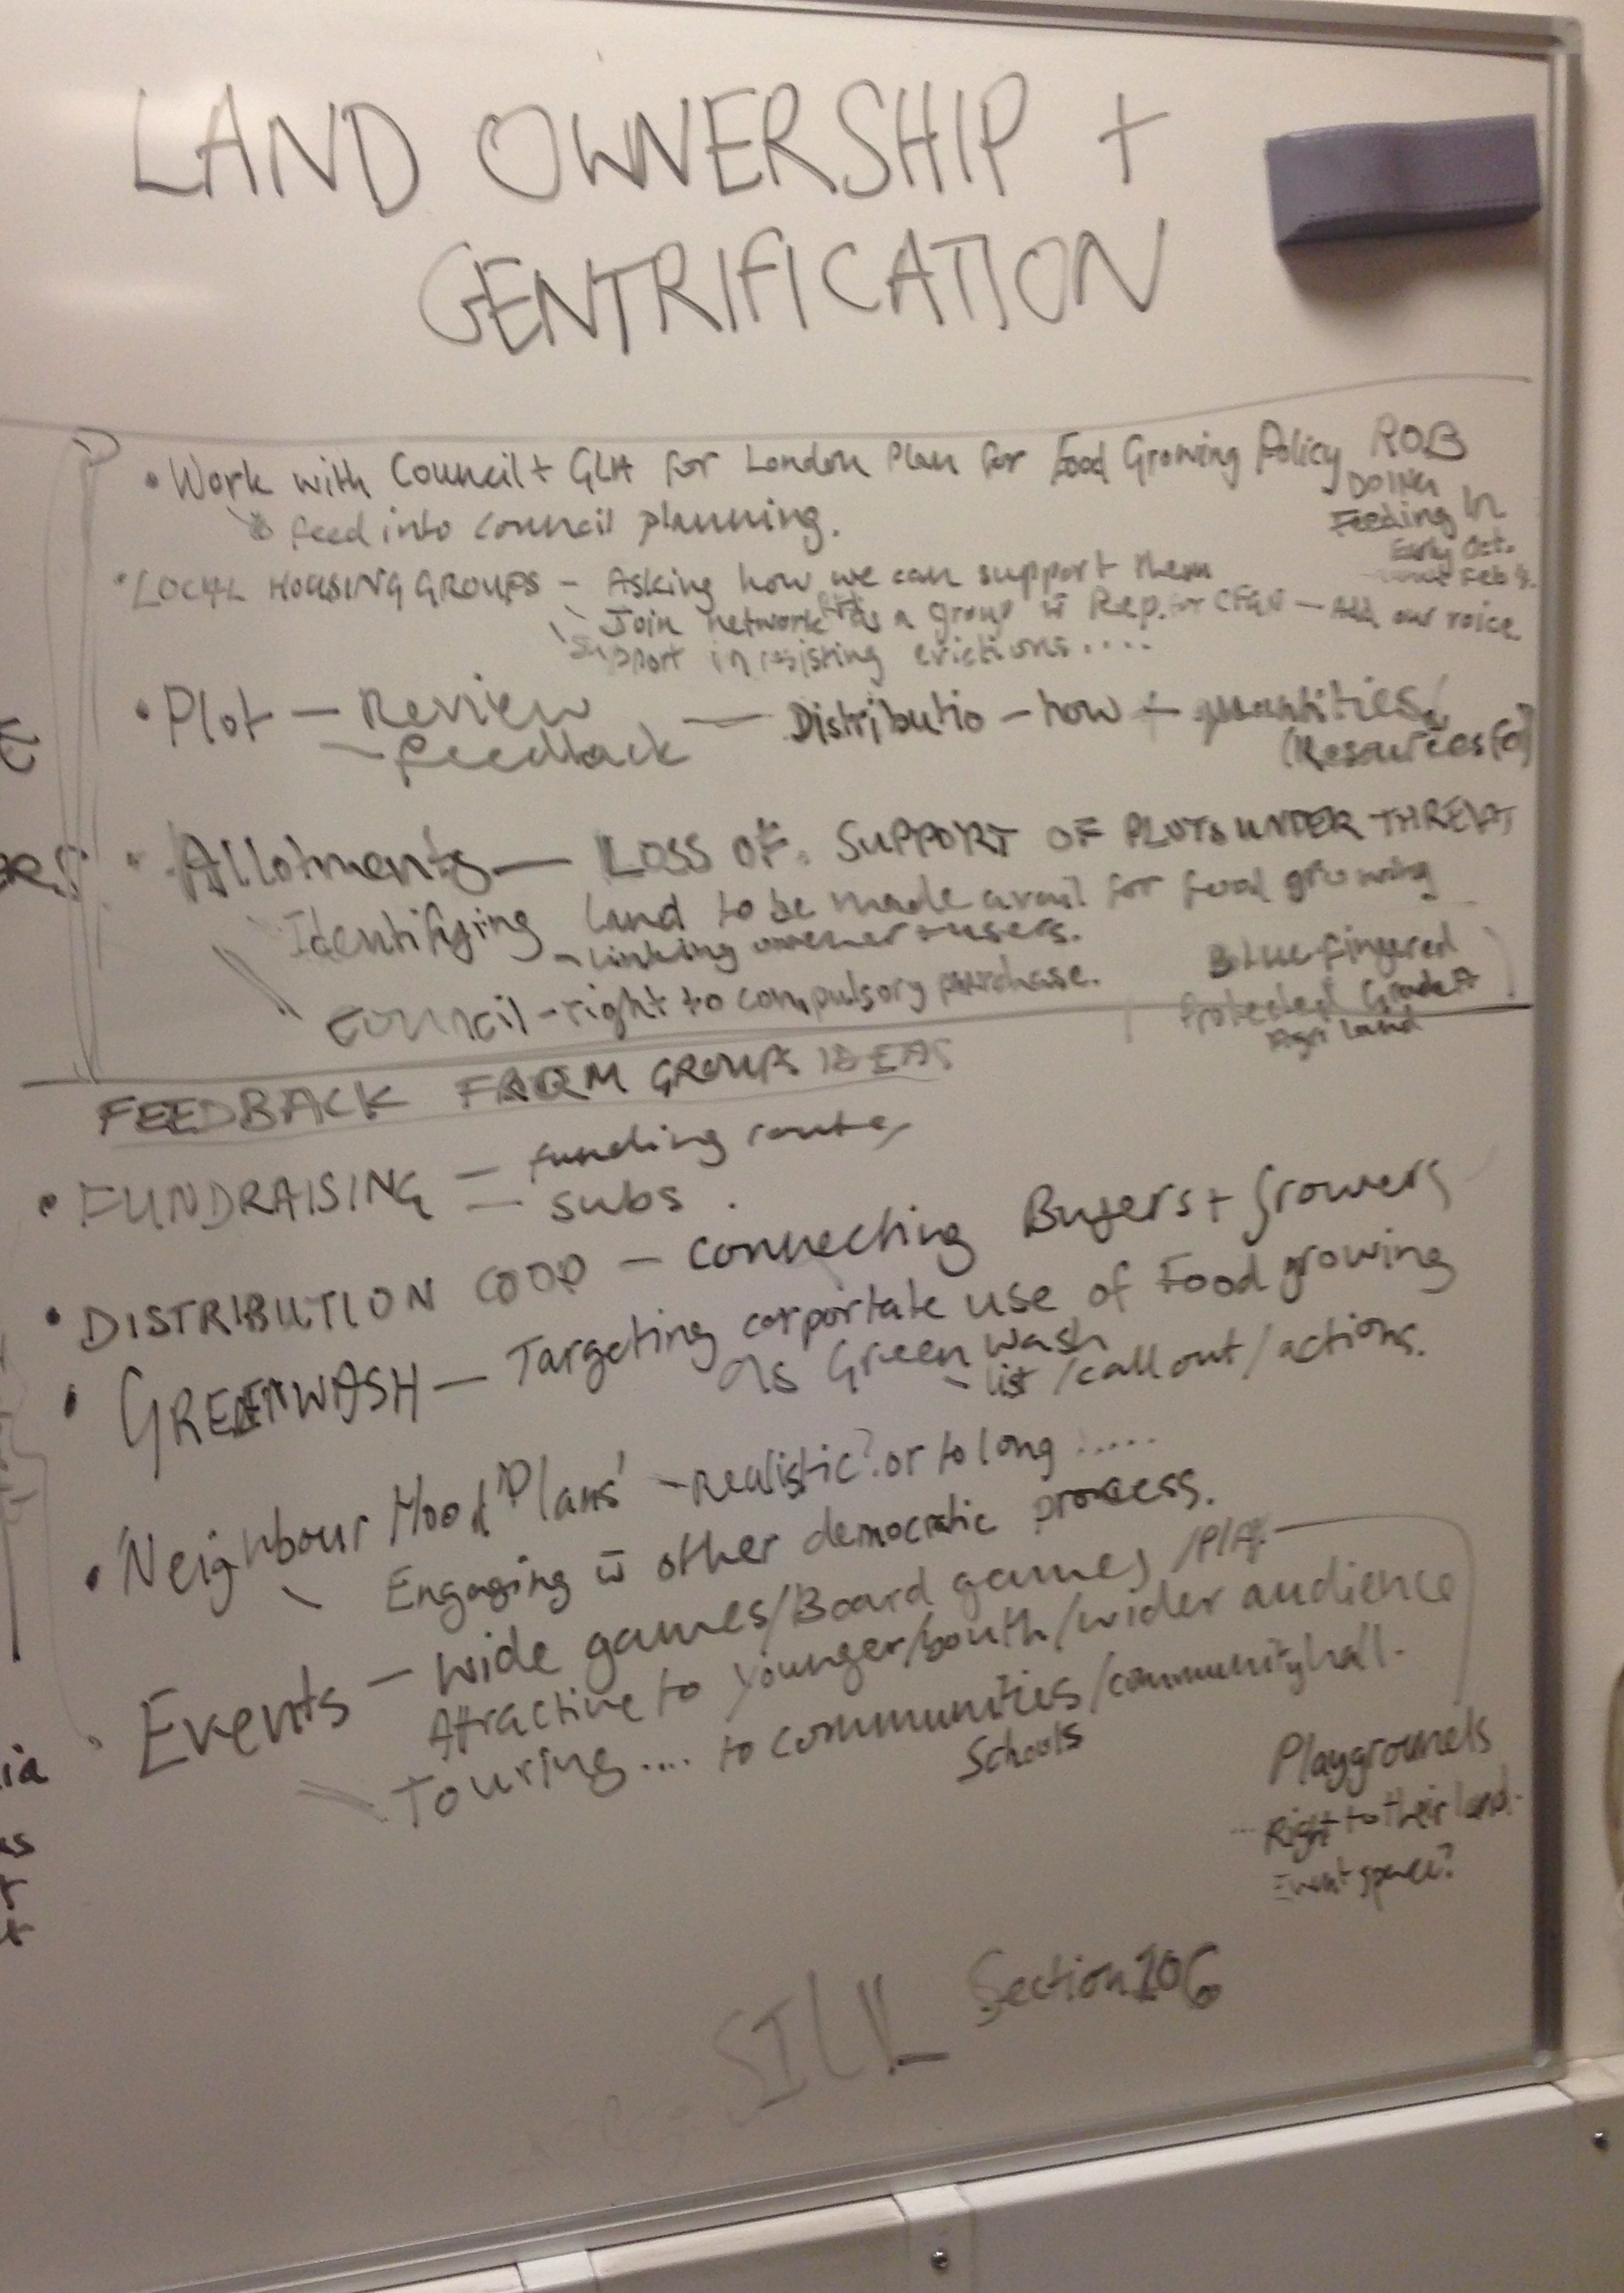 LAND OWNERSHIP +
GENTRIFICATION
• Work with Council + GLA for London Plan for Food Growing Policy ROB
DOING
Feeding in
Early Oct.
Feb
feed into council planning.
• LOCAL HOUSING GROUPS - Asking how we can support them
Join network as a group w̄ Rep. for CFGN - Add our voice
Support in resisting evictions....
• Plot - Review — Distributio - how + quantities
- feedback
(Resources for)
• Allotments — LOSS OF. SUPPORT OF PLOTS UNDER THREAT
Identifying land to be made avail for food growing
- linking owner + users.
Council - right to compulsory purchase.
Blue-fingered
Protected Grade A
Agri Land
FEEDBACK FROM GROUPS IDEAS
• FUNDRAISING - funding routes
- subs.
• DISTRIBUTION COOP - connecting Buyers + Growers
• GREENWASH - Targeting corportate use of Food growing
as Green wash
- list / call out / actions.
• 'Neighbour Hood Plans' - realistic? or to long .....
Engaging w̄ other democratic process.
Events - wide games/Board games /
Attractive to younger/youth/wider audience
Touring.... to communities/community hall.
Schools
Playgrounds
... Right to their land.
Event space?
Section 106